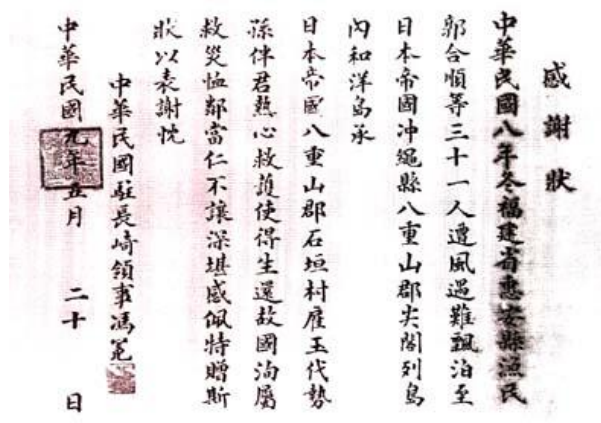 感謝狀
中華民國八年冬福建省惠安縣漁民
郭合順等三十一人遭風遇難飄泊至
日本帝國沖繩縣八重山郡尖閣列島
內和洋島承
日本帝國八重山郡石垣村雇玉代勢
孫伴君熱心救護使得生還故國洵屬
救災恤鄰當仁不讓深堪感佩特贈斯
狀以表謝忱
中華民國駐長崎領事馮冕
中華民國年五月二十日